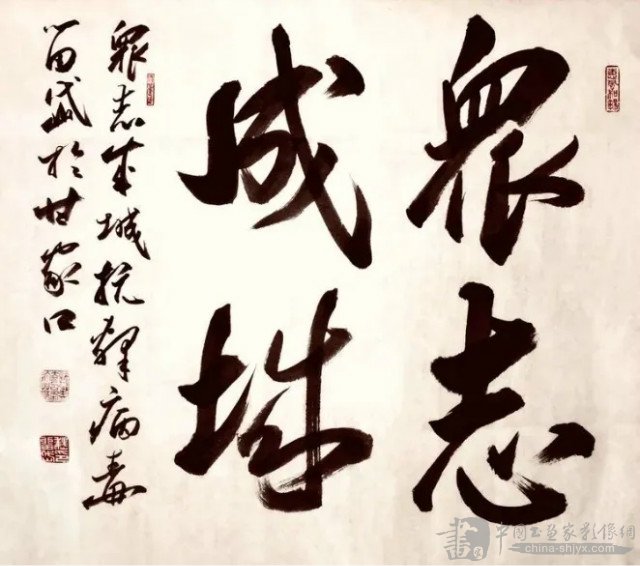 眾志
成城
眾志成城抗擊病毒
於甘家口
中國书画家影像網
china-shjyx.com